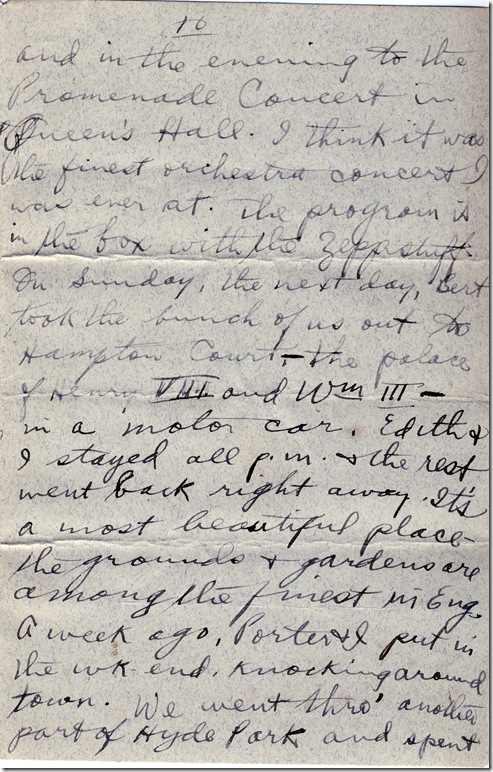 16
and in the evening to the
Promenade Concert in
Queen's Hall. I think it was
the finest orchestra concert I
was ever at. The program is
in the box with the Zepp stuff.
On Sunday, the next day, Bert
took the bunch of us out to
Hampton Court, – the palace
of Henry VIII and Wm III –
in a motor car. Edith &
I stayed all p.m. & the rest
went back right away. It's
a most beautiful place –
the grounds & gardens are
among the finest in Eng.
A week ago, Porter & I put in
the wk-end, knocking around
town. We went thro' another
part of Hyde Park and spent